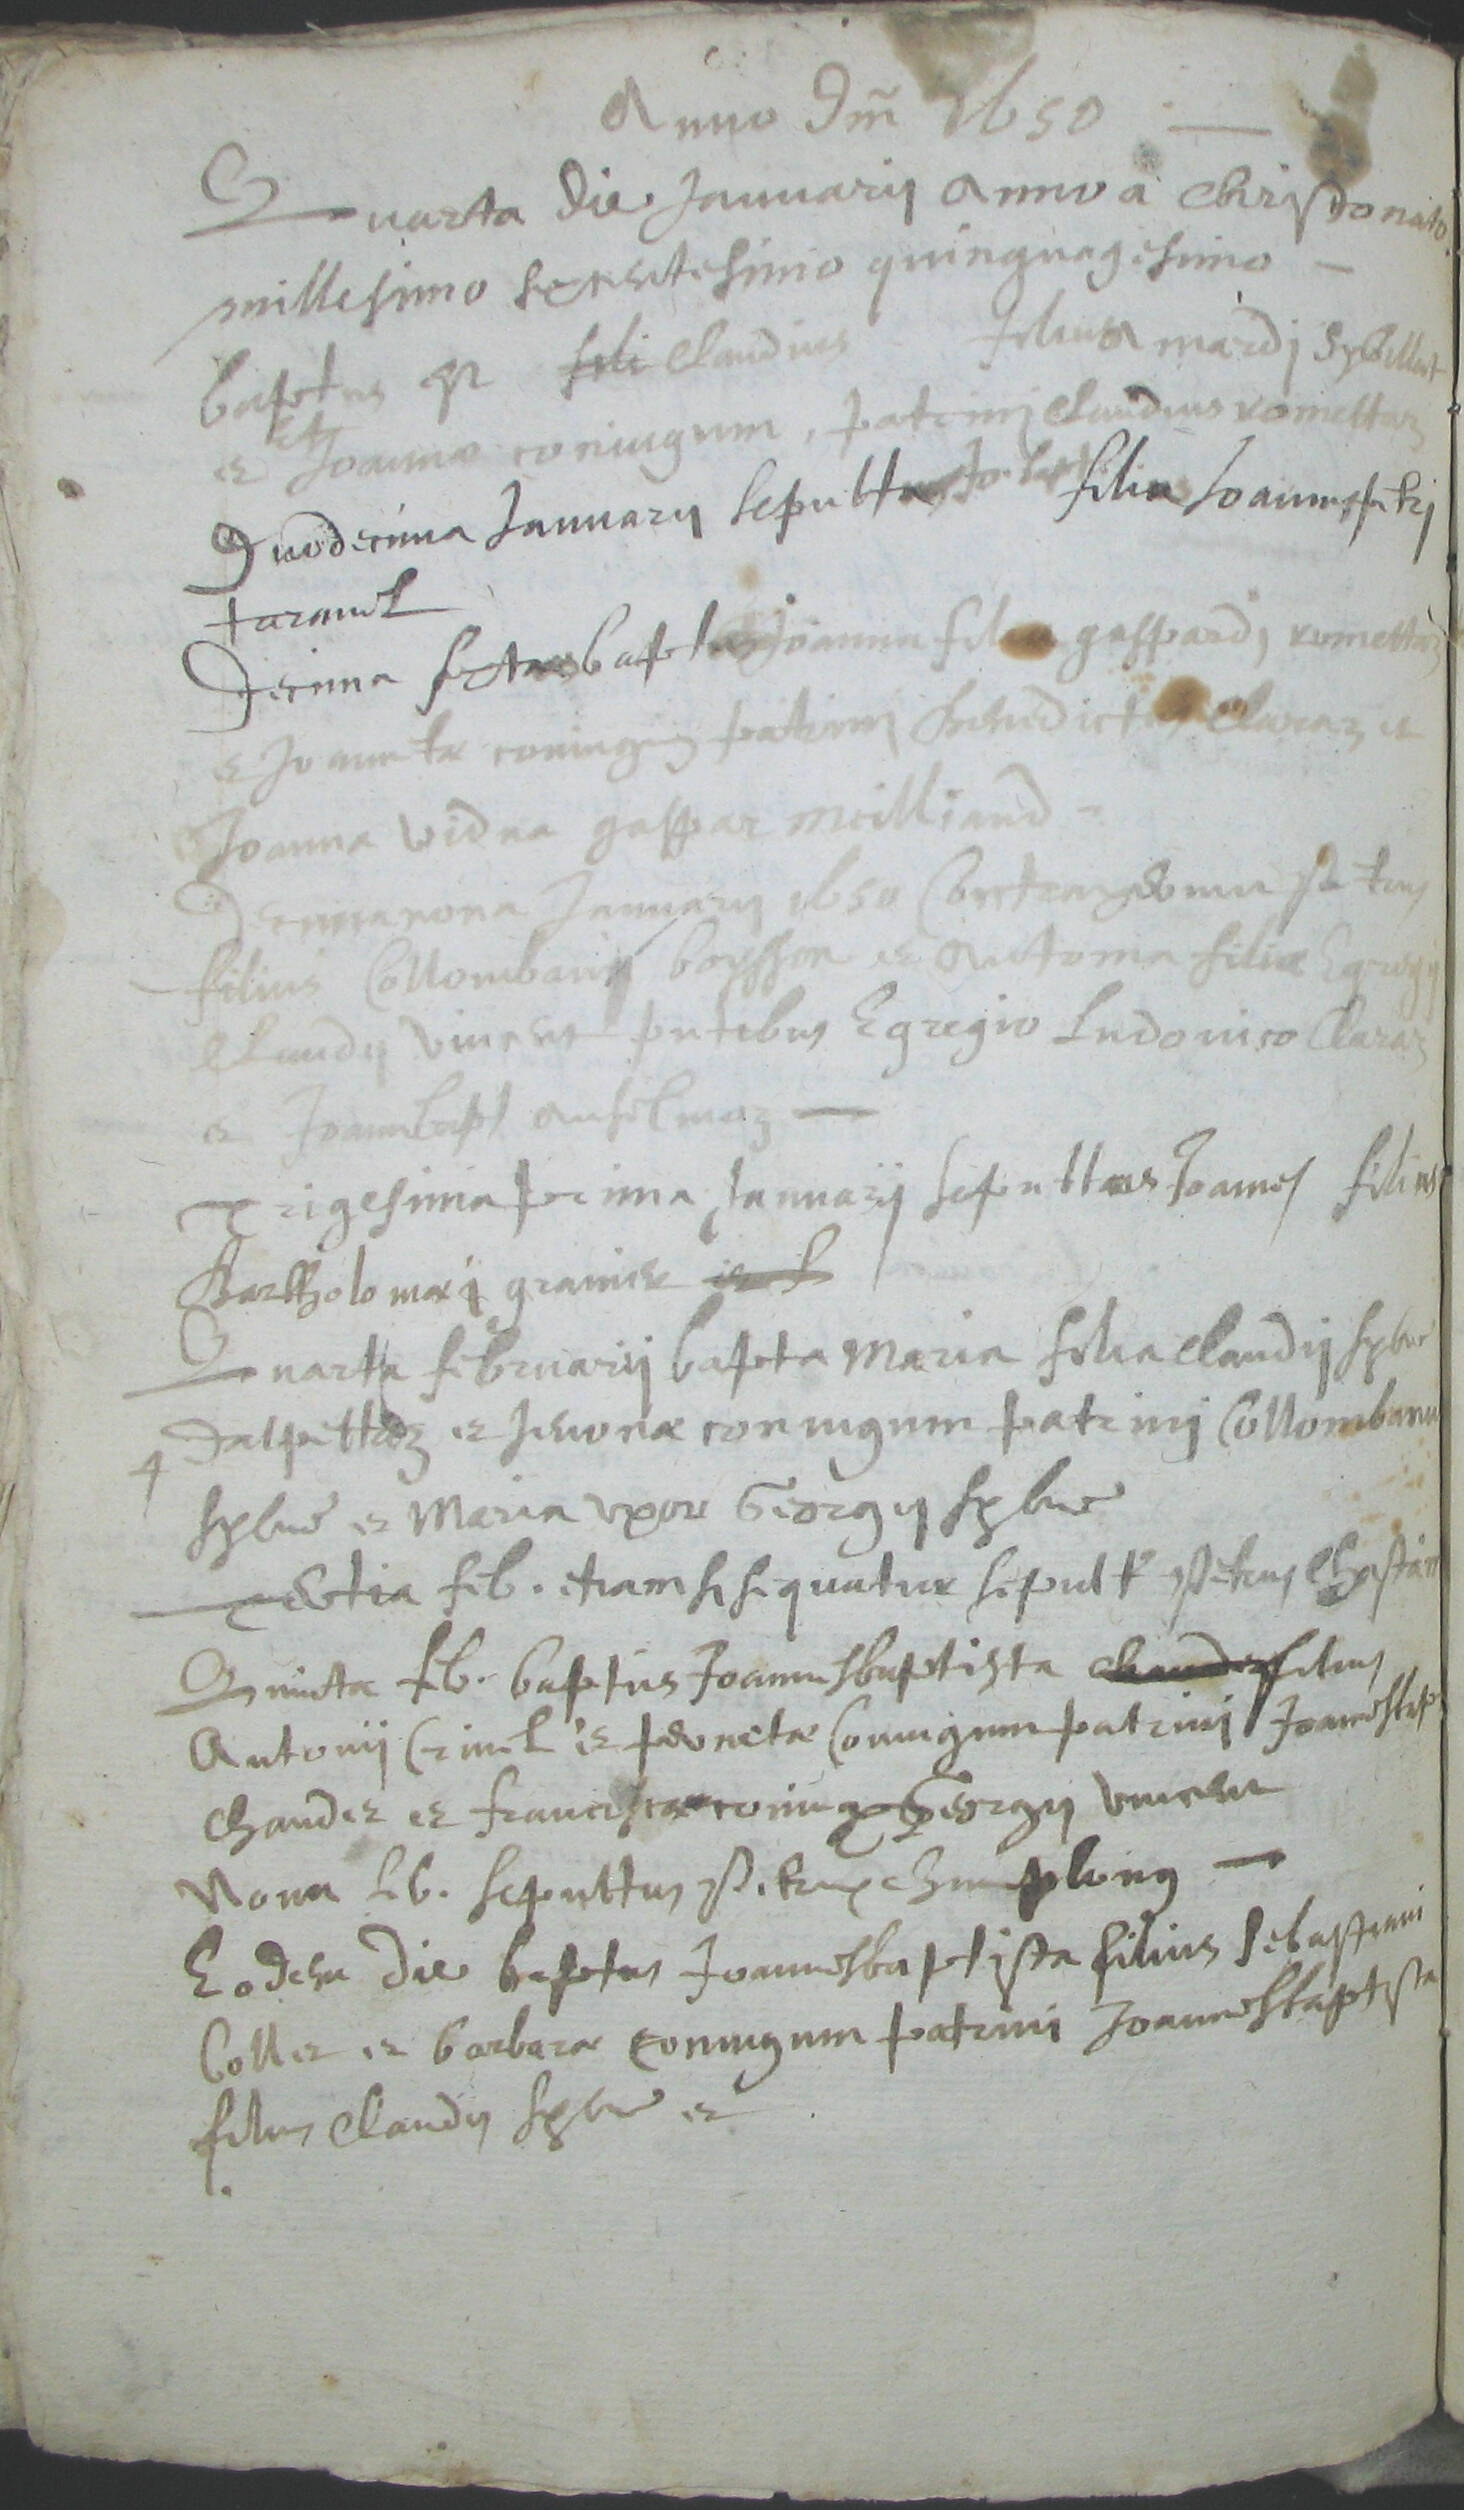 Anno Dni 1650
Quarta die Januarij Anno a Christo nato
millesimo sexcentesimo quinquagesimo
baptus est Claudius filius Amardj Sybillat
et Joannæ coniugum, patrini Claudius romettaz
Duodecima Januarij sepulta filia Joannis petri
taravel
Decima sexta bapta Joanna filia gaspardj romettaz
et Joannetæ coniugum patrini benedictus Claraz et
Joanna vidua gaspar meilliand
Decimanona Januarij 1650 petrus
filius Collombani et Antonia filia Egregij
Claudij vincent pntibus Egregio Ludovico Claraz
et Joannebapt anselmaz
Trigesima prima Januarij sepultus Joannes filius
Bartholomæi
Quarta februarij bapta Maria filia Claudij sybue
dalpettaz et coniugum patrini Collombanus
sybue et Maria vxor Georgij sybue
tertia feb. etiamsi sequatur sepult petrus
Quinta feb. baptus Joannesbaptista filius
Antonij et coniugum patrini Joannesbapt
chander et francisca coniux Georgij vincent
Nona feb. sepultus petrus
Eodem die baptus Joannesbaptista filius Sebastiani
Coller et barbaræ coniugum patrini Joannesbaptista
filius Claudij sybue et